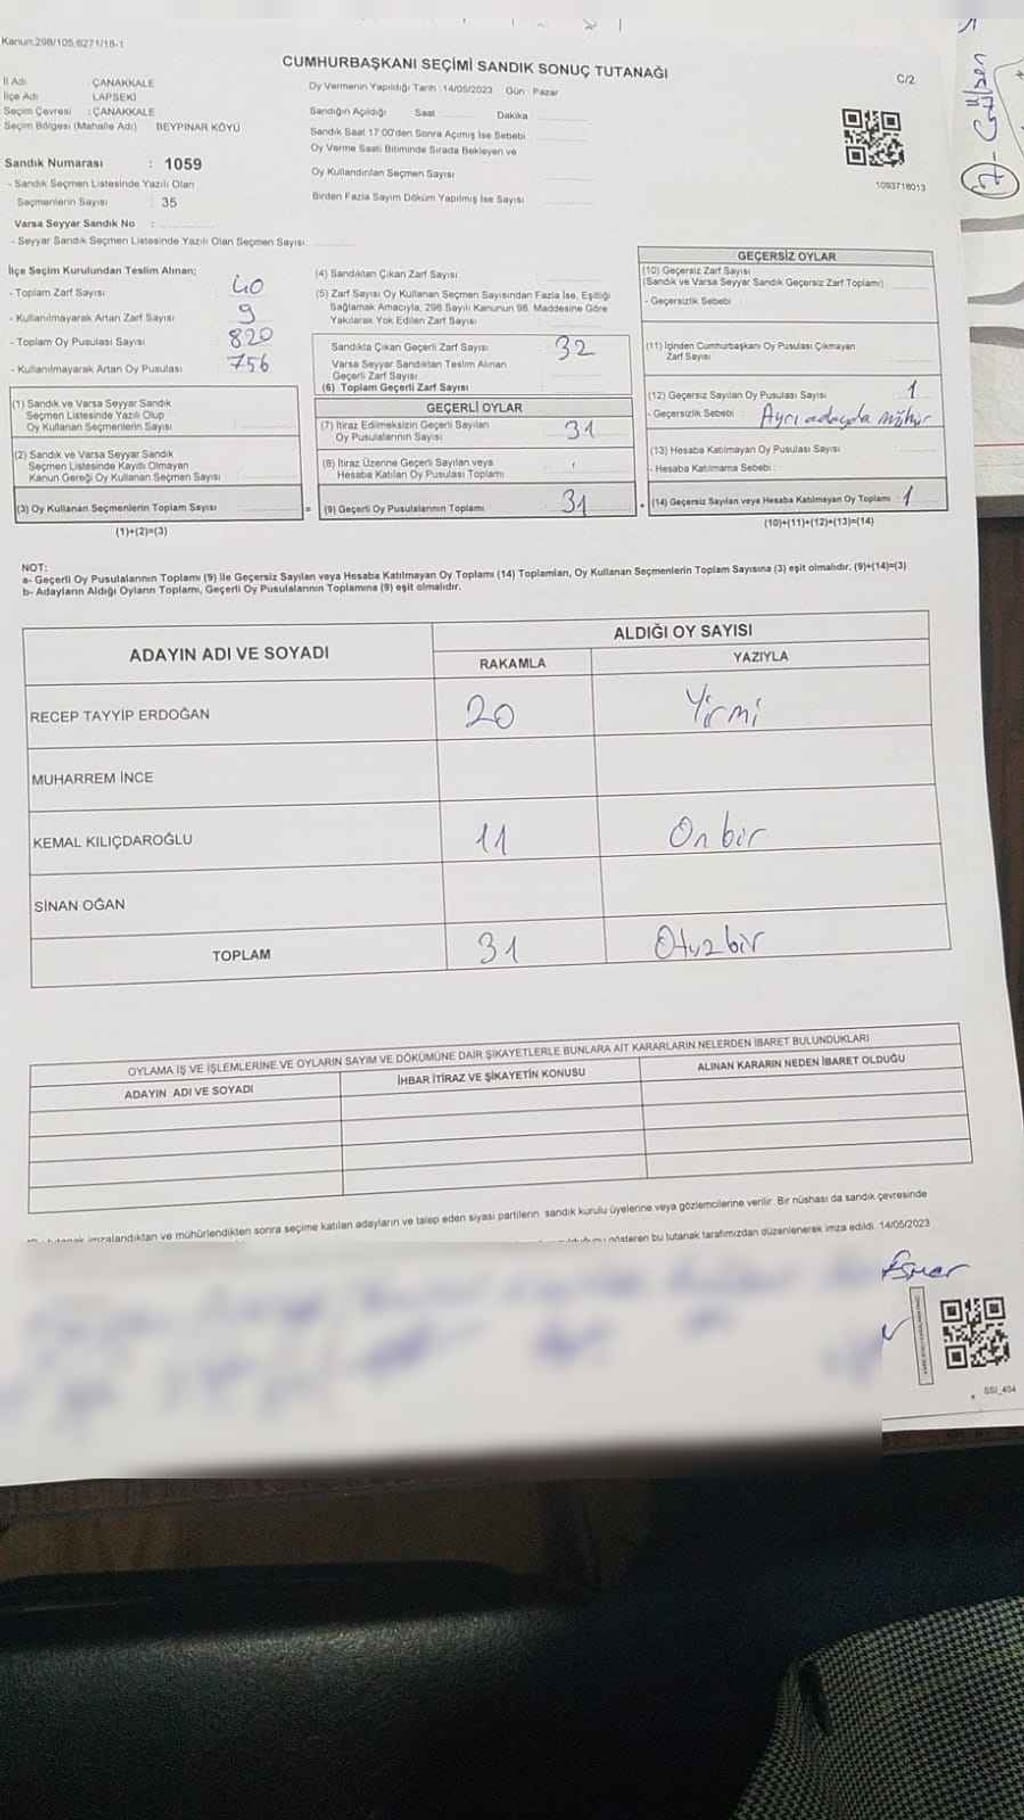 Kanun:298/105,6271/18-1
CUMHURBAŞKANI SEÇİMİ SANDIK SONUÇ TUTANAĞI
C/2
İl Adı ÇANAKKALE
İlçe Adı LAPSEKİ
Seçim Çevresi : ÇANAKKALE
Seçim Bölgesi (Mahalle Adı) BEYPINAR KÖYÜ
Sandık Numarası : 1059
- Sandık Seçmen Listesinde Yazılı Olan
Seçmenlerin Sayısı : 35
Varsa Seyyar Sandık No :
- Seyyar Sandık Seçmen Listesinde Yazılı Olan Seçmen Sayısı:
Oy Vermenin Yapıldığı Tarih : 14/05/2023 Gün : Pazar
Sandığın Açıldığı Saat Dakika
Sandık Saat 17:00'den Sonra Açımış İse Sebebi
Oy Verme Saati Bitiminde Sırada Bekleyen ve
Oy Kullandırılan Seçmen Sayısı
Birden Fazla Sayım Döküm Yapılmış İse Sayısı
1093718013
7 - Gülsen
İlçe Seçim Kurulundan Teslim Alınan;
- Toplam Zarf Sayısı 40
- Kullanılmayarak Artan Zarf Sayısı 9
- Toplam Oy Pusulası Sayısı 820
- Kullanılmayarak Artan Oy Pusulası 756
(1) Sandık ve Varsa Seyyar Sandık
Seçmen Listesinde Yazılı Olup
Oy Kullanan Seçmenlerin Sayısı
(2) Sandık ve Varsa Seyyar Sandık
Seçmen Listesinde Kayıtlı Olmayan
Kanun Gereği Oy Kullanan Seçmen Sayısı
(3) Oy Kullanan Seçmenlerin Toplam Sayısı
=
(1)+(2)=(3)
(4) Sandıktan Çıkan Zarf Sayısı
(5) Zarf Sayısı Oy Kullanan Seçmen Sayısından Fazla İse, Eşitliği
Sağlamak Amacıyla, 298 Sayılı Kanunun 98. Maddesine Göre
Yakılarak Yok Edilen Zarf Sayısı
Sandıkta Çıkan Geçerli Zarf Sayısı 32
Varsa Seyyar Sandıktan Teslim Alınan
Geçerli Zarf Sayısı
(6) Toplam Geçerli Zarf Sayısı
GEÇERLİ OYLAR
(7) İtiraz Edilmeksizin Geçerli Sayılan
Oy Pusulalarının Sayısı 31
(8) İtiraz Üzerine Geçerli Sayılan veya
Hesaba Katılan Oy Pusulası Toplamı
(9) Geçerli Oy Pusulalarının Toplamı 31
+
GEÇERSİZ OYLAR
(10) Geçersiz Zarf Sayısı
(Sandık ve Varsa Seyyar Sandık Geçersiz Zarf Toplamı)
- Geçersizlik Sebebi
(11) İçinden Cumhurbaşkanı Oy Pusulası Çıkmayan
Zarf Sayısı
(12) Geçersiz Sayılan Oy Pusulası Sayısı 1
- Geçersizlik Sebebi : Ayrı adayda mühür
(13) Hesaba Katılmayan Oy Pusulası Sayısı
- Hesaba Katılmama Sebebi :
(14) Geçersiz Sayılan veya Hesaba Katılmayan Oy Toplamı 1
(10)+(11)+(12)+(13)=(14)
NOT:
a- Geçerli Oy Pusulalarının Toplamı (9) ile Geçersiz Sayılan veya Hesaba Katılmayan Oy Toplamı (14) Toplamları, Oy Kullanan Seçmenlerin Toplam Sayısına (3) eşit olmalıdır. (9)+(14)=(3)
b- Adayların Aldığı Oyların Toplamı, Geçerli Oy Pusulalarının Toplamına (9) eşit olmalıdır.
ADAYIN ADI VE SOYADI ALDIĞI OY SAYISI
RAKAMLA YAZIYLA
RECEP TAYYİP ERDOĞAN 20 Yirmi
MUHARREM İNCE
KEMAL KILIÇDAROĞLU 11 Onbir
SİNAN OĞAN
TOPLAM 31 Otuzbir
OYLAMA İŞ VE İŞLEMLERİNE VE OYLARIN SAYIM VE DÖKÜMÜNE DAİR ŞİKAYETLERLE BUNLARA AİT KARARLARIN NELERDEN İBARET BULUNDUKLARI
ADAYIN ADI VE SOYADI İHBAR İTİRAZ VE ŞİKAYETİN KONUSU ALINAN KARARIN NEDEN İBARET OLDUĞU
imzalandıktan ve mühürlendikten sonra seçime katılan adayların ve talep eden siyasi partilerin sandık kurulu üyelerine veya gözlemcilerine verilir. Bir nüshası da sandık çevresinde
gösteren bu tutanak tarafımızdan düzenlenerek imza edildi. 14/05/2023